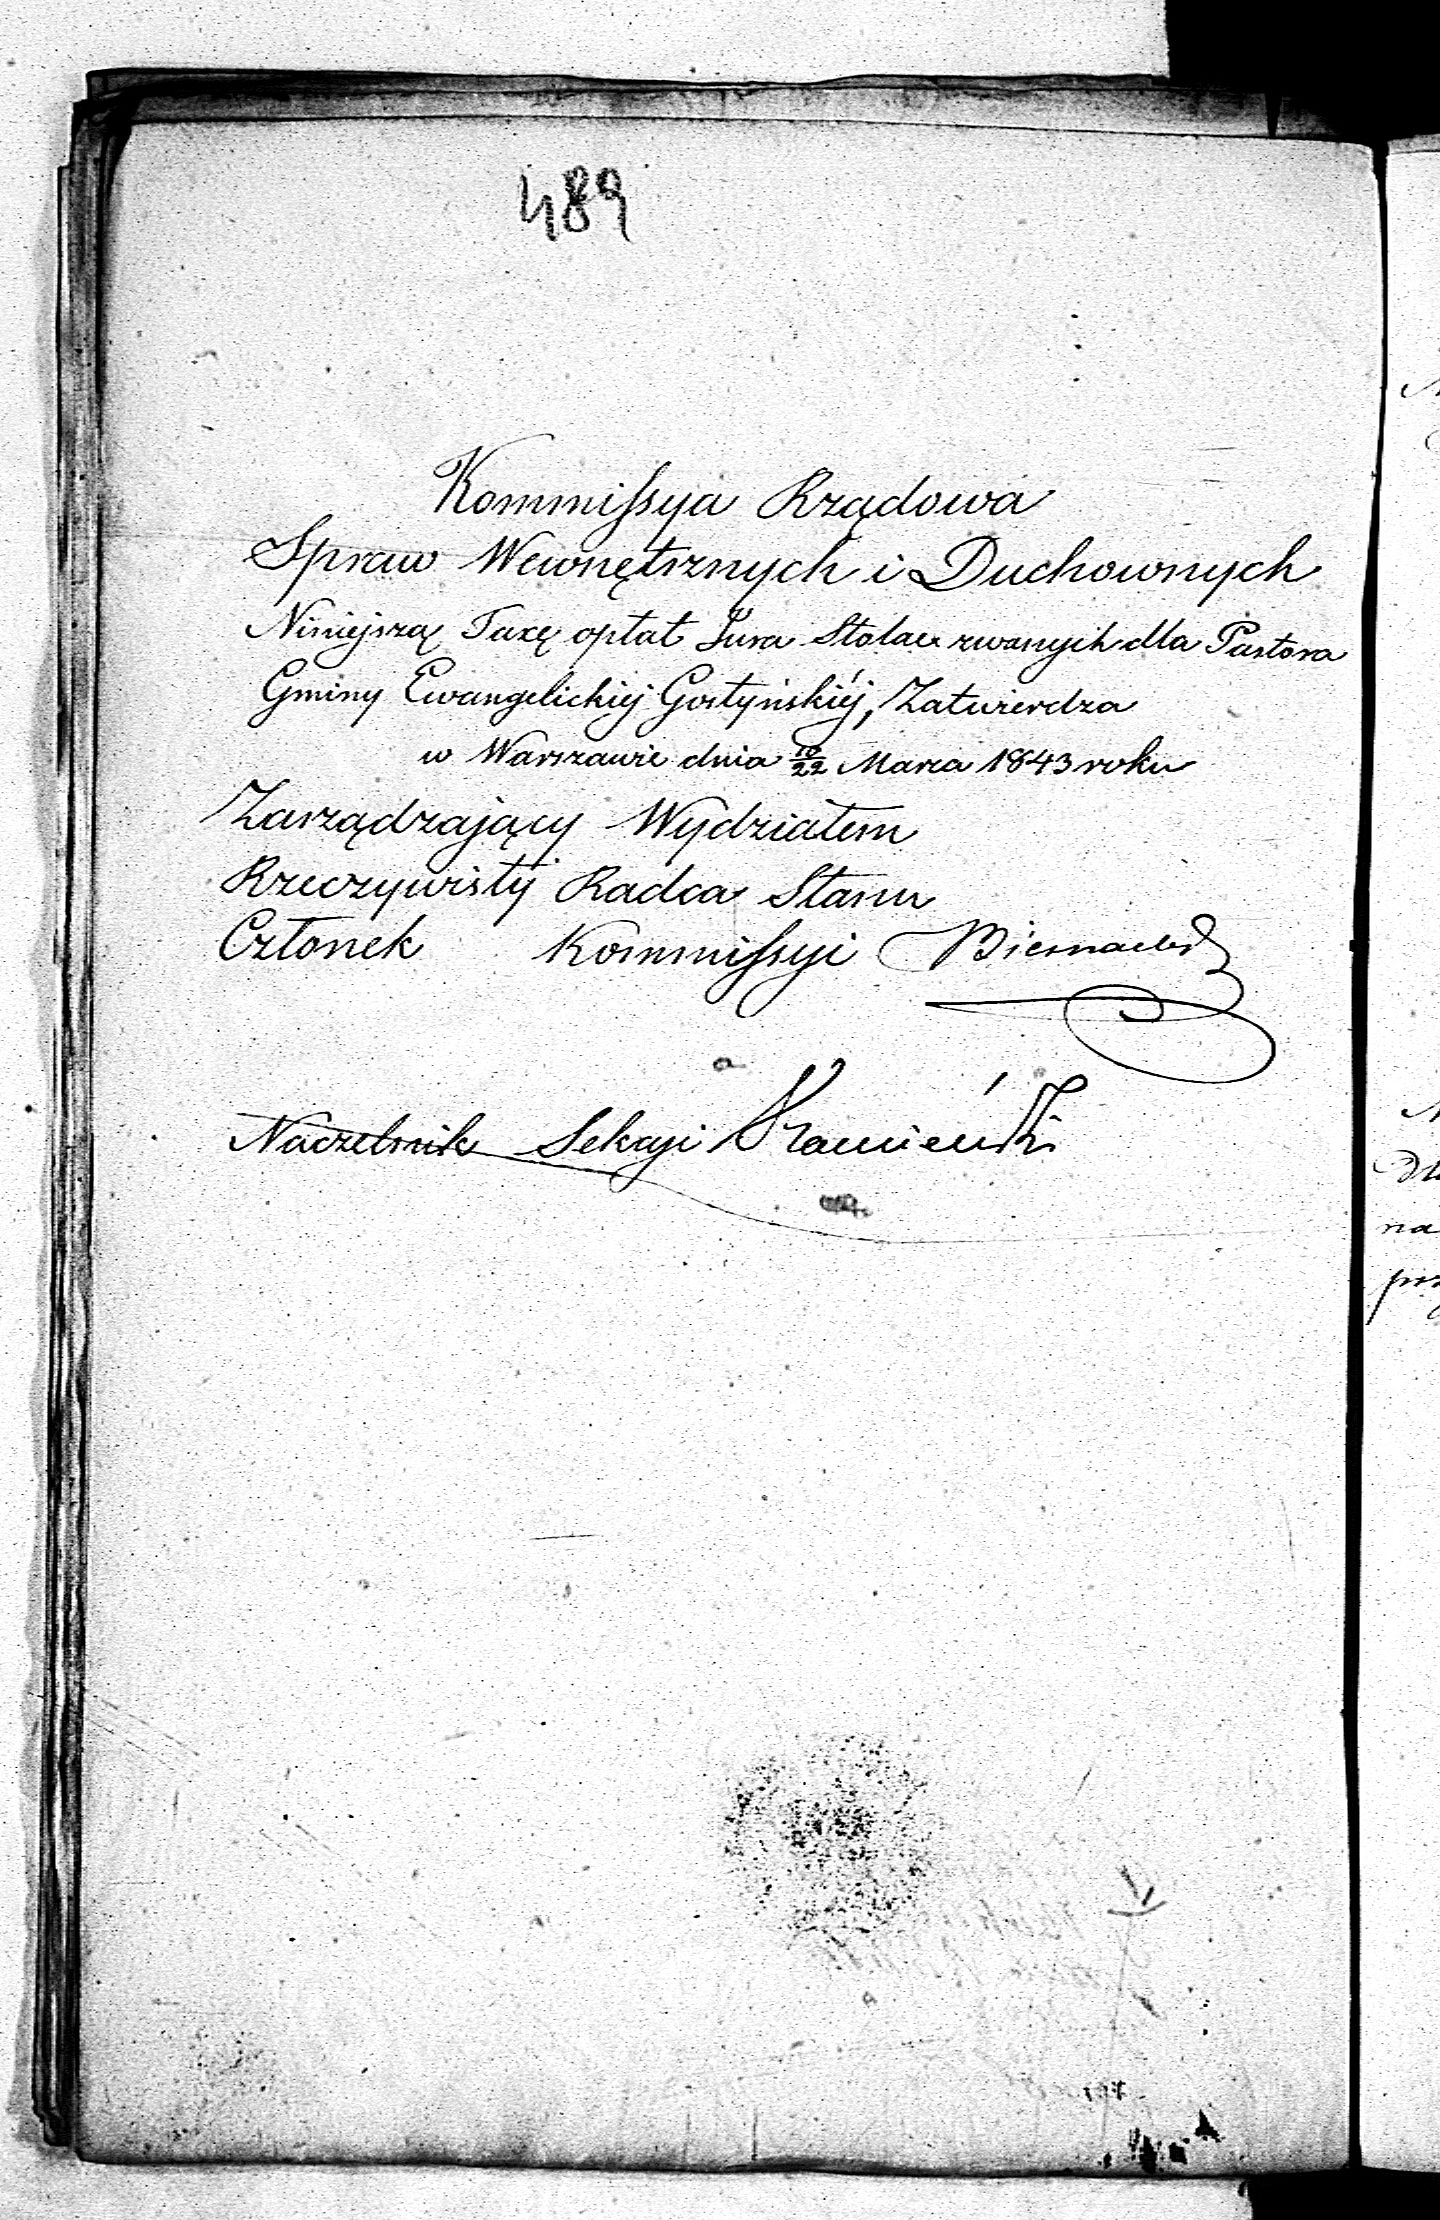 489
Kommissya Rządowa
Spraw Wewnętrznych i Duchownych
Niniejszą Taxę opłat Jura Stolae zwanych dla Pastora
Gminy Ewangelickiej Gostyńskiéj, Zatwierdza
w Warszawie dnia 10/22 Marca 1843 roku
Zarządzający Wydziałem
Rzeczywisty Radca Stanu
Członek Kommissyi Biernacki
Naczelnik Sekcyi Kamieński
dla
na